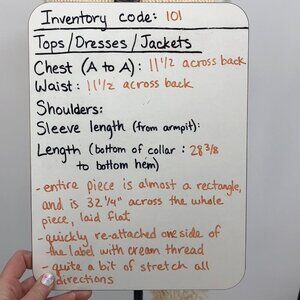 Inventory code: 101
Tops/Dresses/Jackets
Chest (A to A): 11 1/2 across back
Waist: 11 1/2 across back
Shoulders:
Sleeve length (from armpit):
Length (bottom of collar: 28 3/8
to bottom hem)
- entire piece is almost a rectangle,
and is 32 1/4" across the whole
piece, laid flat
- quickly re-attached one side of
the label with cream thread
- quite a bit of stretch all
directions